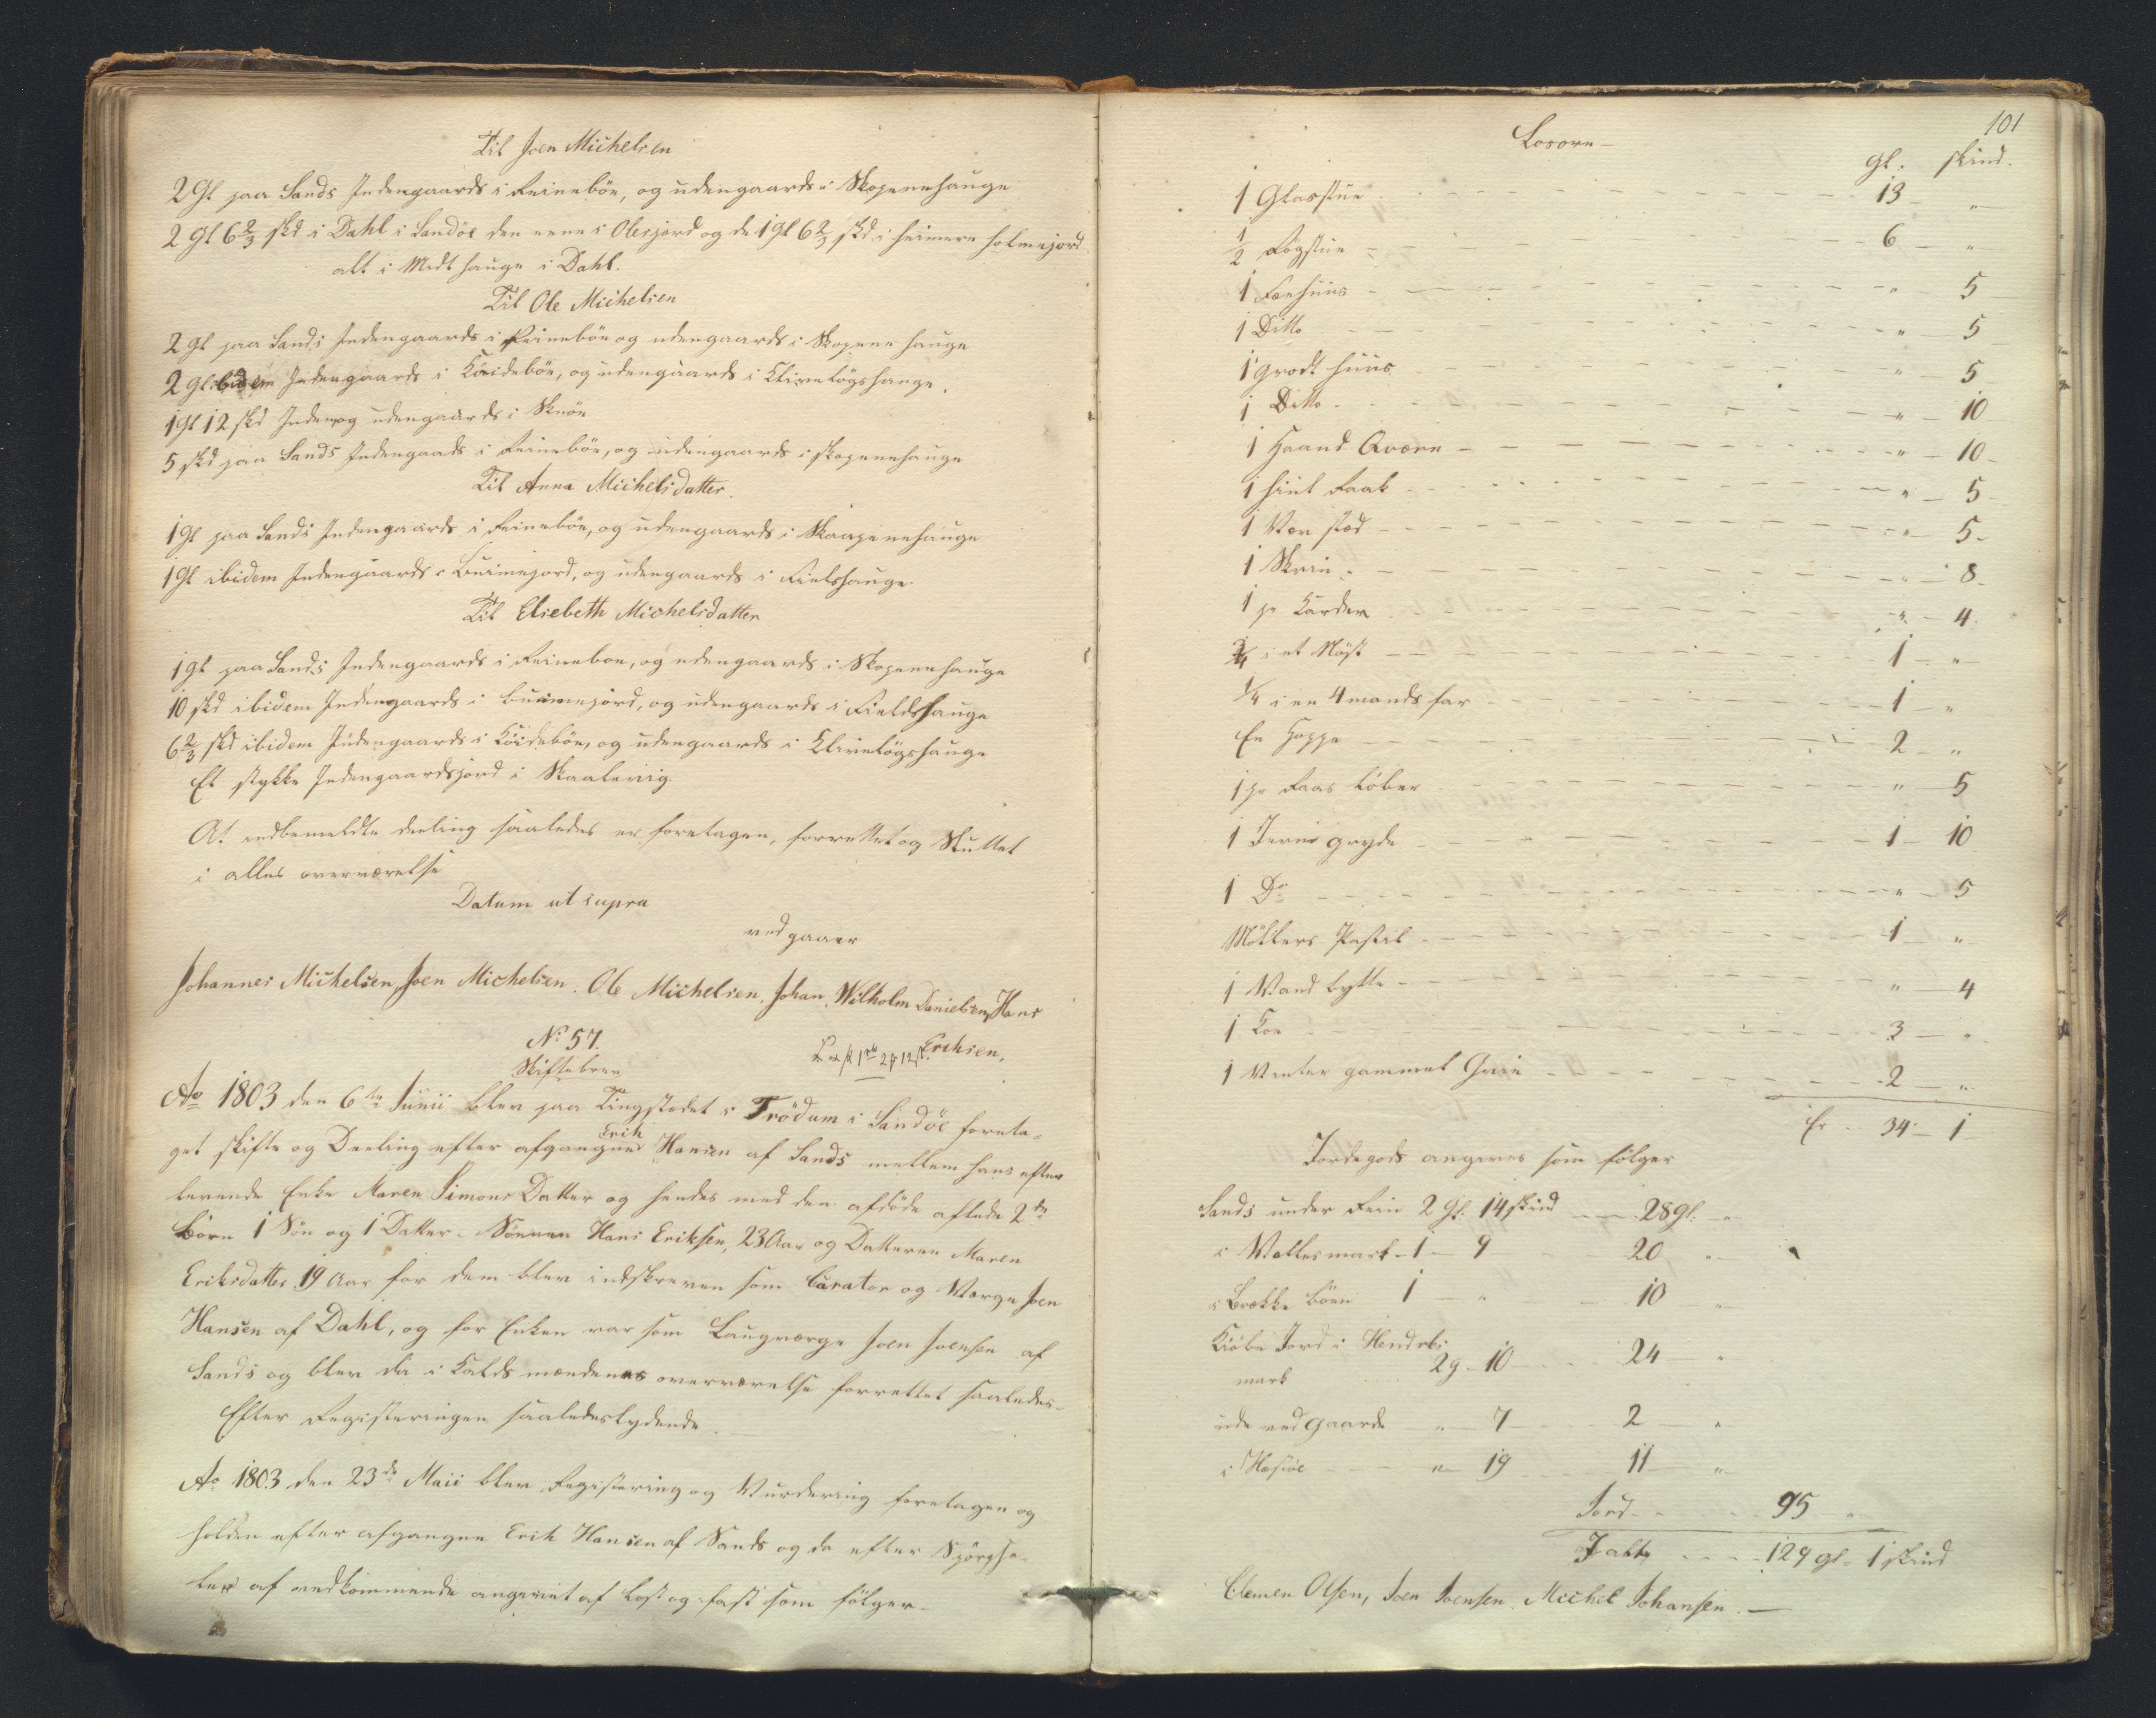 Til Joen Michelsen
2 Gl paa Sands Indengaards i Reinebøe, og udengaards i Skopenehauge
2 Gl 6 2/3 skd i Dahl i Sandöe den eene i Olesjord og de 1 Gl 6 2/3 skd i heimere holmejord
alt i Midt hauge i Dahl.
Til Ole Michelsen
2 Gl paa Sands Indengaards i Reinebøe og udengaards i Skopene hauge
2 Gl ibidem Indengaards i Köidebøe, og udengaards i Klivelögshauge.
1 Gl 12 skd Inden og udengaards i Skuöe
5 skd paa Sands Indengaards i Reinebøe, og udengaards i Skopenehauge
Til Anna Michelsdatter.
1 Gl paa Sands Indengaards i Reinebøe, og udengaards i Skaapenehauge
1 Gl ibidem Indengaards i Buimejord, og udengaards i Fielshauge.
Til Elsebeth Michelsdatter
1 Gl paa Sands Indengaards i Reineboe, og udengaards i Skopenehauge
10 skd ibidem Indengaards i buimejord, og udengaards i Fieldshauge
6 2/3 skd ibidem Indengaards i Köidebøe, og udengaards i Klivelögshauge
Et stykke Indengaardsjord i Skaalevig.
At endbemeldte deeling saaledes er foretagen, forrettet og Sluttet
i alles overværelse
Datum ut supra
vedgaaer
Johannes Michelsen, Joen Michelsen. Ole Michelsen. Johan Wilholm Danielsen, Hans
Erichsen.
No 57.
Skiftebrev
Ao 1803 den 6te Junii blev paa Tingstedet i Trödum i Sandöe foreta-
get skifte og Deeling efter afgangne Erich Hansen af Sands mellem hans efter
levende Enke Maren Simons Datter og hendes med den afdöde aflede 2de
Börn 1 Sön og 1 Datter. Sönnen Hans Eriksen, 23 Aar og Datteren Maren
Eriksdatter 19 Aar for dem blev indskreven som Curator og Værge Joen
Hansen af Dahl, og for Enken var som Laugværge Joen Joensen af
Sands og blev da i Kaldsmændenes overværelse forrettet saaledes-
Efter Registeringen saaledeslydende.
Ao 1803 den 23de Maii blev Registering og Vurdering foretagen og
holden efter afgangen Erich Hansen af Sands og da efter Spörgse-
ler af vedkommende angivet af Löst og fast som fölger-
101
Losore-
Gl. skind.
1 Glasstue 13 "
1/2 Rögstue 6 "
1 Foehuus " 5
1 Ditto " 5
1 grodt huus " 5
1 Ditto " 10
1 Haand Qværn " 10
1 " 5
1 " 5
1 Skrin " 8
1 pr Karder " 4
1/4 i et Nöst 1 "
1/4 i en 4mands far 1 "
En Hoppe 2 "
1 pr Löber " 5
1 Jerns gryde 1 10
1 Do " 5
Möllers Postil 1 "
1 Vand bytte " 4
1 Koe 3 "
1 Vinter gammel Qvie 2 "
Er 34 1
Jordegods angives som fölger
Sands under Rein 2 Gl. 14 skind 28 gl. "
i Vallesmark 1 9 20 "
i Brekke böen 1 " 10 "
Kiöbe Jord i
mark 2 g 10 24 "
ude ved gaarde " 7 2 "
i " 19 11 "
Jord 95 "
I alt 129 gl. 1 skind
Clemen Olsen, Joen Joensen. Michel Johansen.